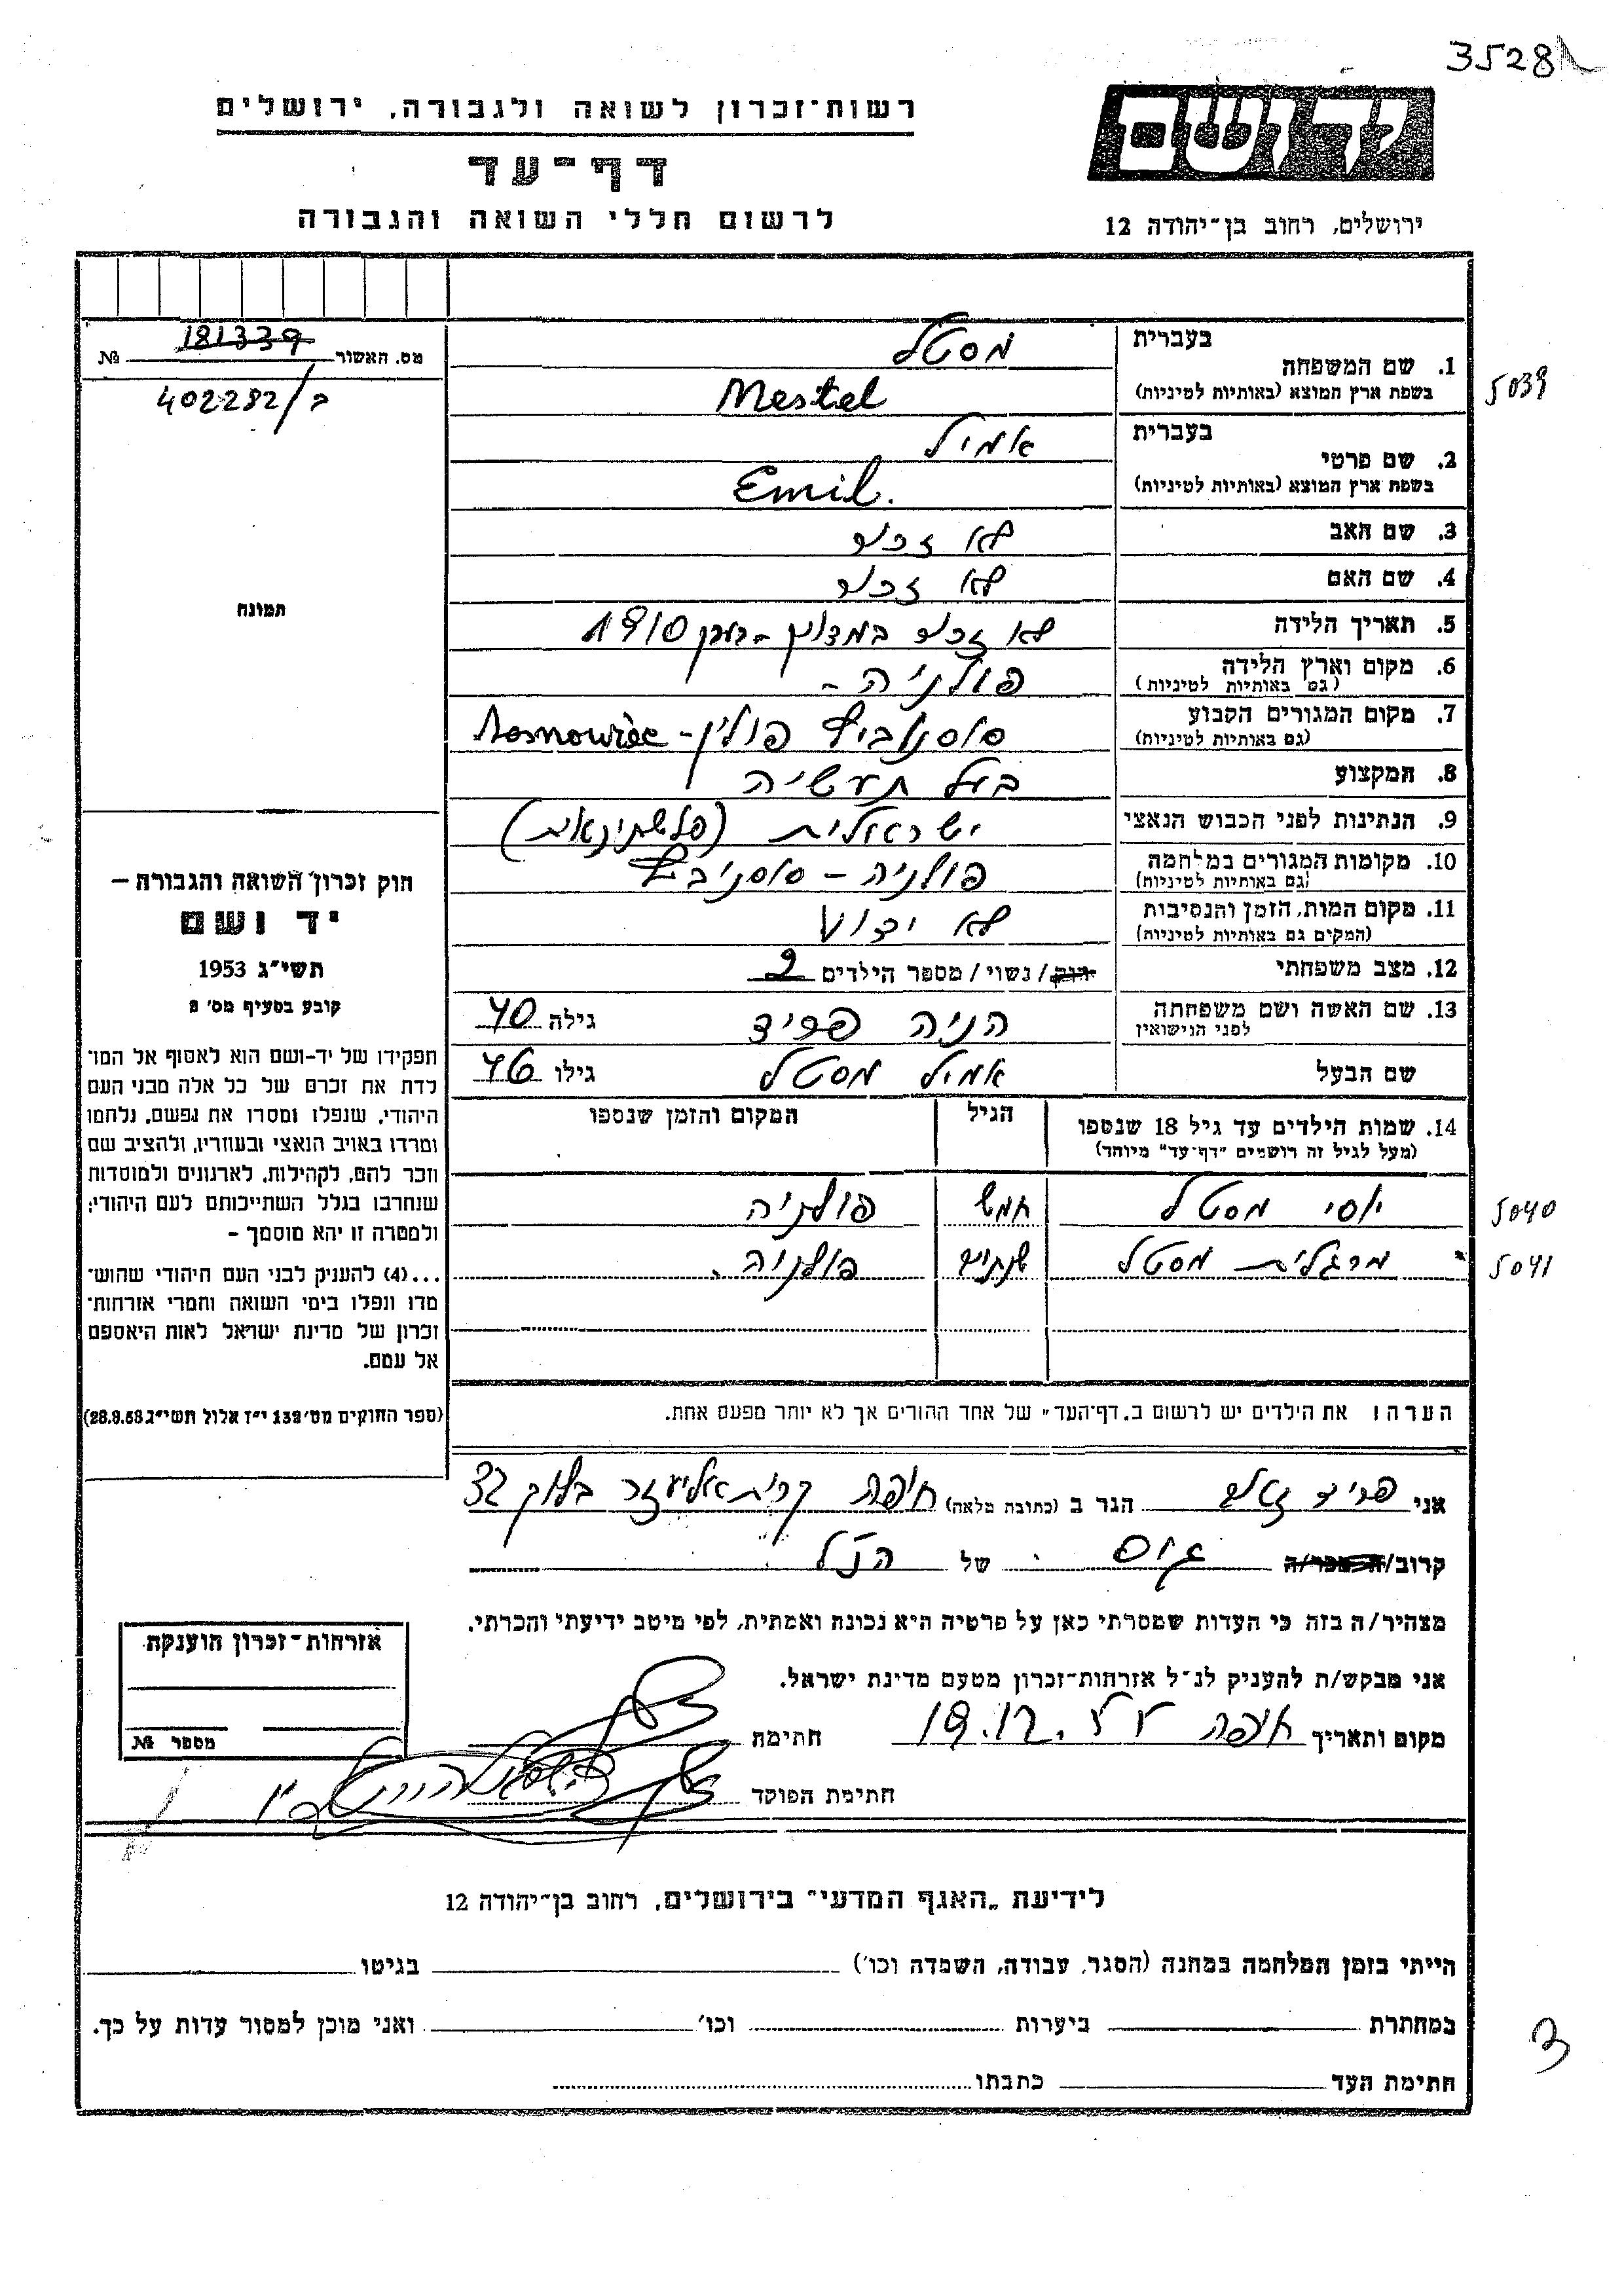 3528
רשות־זכרון לשואה ולגבורה, ירושלים
ידושם
דף־עד
לרשום חללי השואה והגבורה
ירושלים, רחוב בן־יהודה 12
מס. האשור 181339 №
402282/ב
תמונה
בעברית מסטל
1. שם המשפחה
בשפת ארץ המוצא (באותיות לטיניות) Mestel
5039
בעברית אמיל
2. שם פרטי
בשפת ארץ המוצא (באותיות לטיניות) Emil.
3. שם האב לא זכור
4. שם האם לא זכור
5. תאריך הלידה לא זכור במדויק - 1910
6. מקום וארץ הלידה פולניה -
(גם באותיות לטיניות)
7. מקום המגורים הקבוע סוסנוביץ פולין - Sosnowiec
(גם באותיות לטיניות)
8. המקצוע בעל תעשיה
9. הנתינות לפני הכבוש הנאצי ישראלית (פלשתינאית)
10. מקומות המגורים במלחמה פולניה - סוסנוביץ
(גם באותיות לטיניות)
11. מקום המות, הזמן והנסיבות לא ידוע
(המקום גם באותיות לטיניות)
12. מצב משפחתי רווק / נשוי / מספר הילדים 2
13. שם האשה ושם משפחתה הניה פריד גילה 40
לפני הנישואין
שם הבעל אמיל מסטל גילו 46
14. שמות הילדים עד גיל 18 שנספו הגיל המקום והזמן שנספו
(מעל לגיל זה רושמים "דף־עד" מיוחד)
יוסי מסטל חמש פולניה 5040
מרגלית מסטל שנתיים פולניה. 5041
חוק זכרון השואה והגבורה –
יד ושם
תשי״ג 1953
קובע בסעיף מס׳ 2
תפקידו של יד-ושם הוא לאסוף אל המו־
לדת את זכרם של כל אלה מבני העם
היהודי, שנפלו ומסרו את נפשם, נלחמו
ומרדו באויב הנאצי ובעוזריו, ולהציב שם
וזכר להם, לקהילות, לארגונים ולמוסדות
שנחרבו בגלל השתייכותם לעם היהודי;
ולמטרה זו יהא מוסמך –
...(4) להעניק לבני העם היהודי שהוש־
מדו ונפלו בימי השואה והמרי אזרחות־
זכרון של מדינת ישראל לאות היאספם
אל עמם.
(ספר החוקים מס׳ 132 י״ז אלול תשי״ג 28.8.53)
הערה: את הילדים יש לרשום ב„דף־העד״ של אחד ההורים אך לא יותר מפעם אחת.
אני פריד הגר ב (כתובת מלאה) חיפה קרית אליעזר בלוק 32
קרוב/ה מכר/ה גיס של הנ״ל
מצהיר/ה בזה כי העדות שמסרתי כאן על פרטיה היא נכונה ואמתית, לפי מיטב ידיעתי והכרתי.
אני מבקש/ת להעניק לנ״ל אזרחות־זכרון מטעם מדינת ישראל.
מקום ותאריך חיפה 19.12. חתימה
חתימת הפוקד
אזרחות־זכרון הוענקה
מספר №
לידיעת „האגף המדעי״ בירושלים, רחוב בן־יהודה 12
הייתי בזמן המלחמה במחנה (הסגר, עבודה, השמדה וכו׳) בגיטו
במחתרת ביערות וכו׳ ואני מוכן למסור עדות על כך.
חתימת העד כתבתו
3